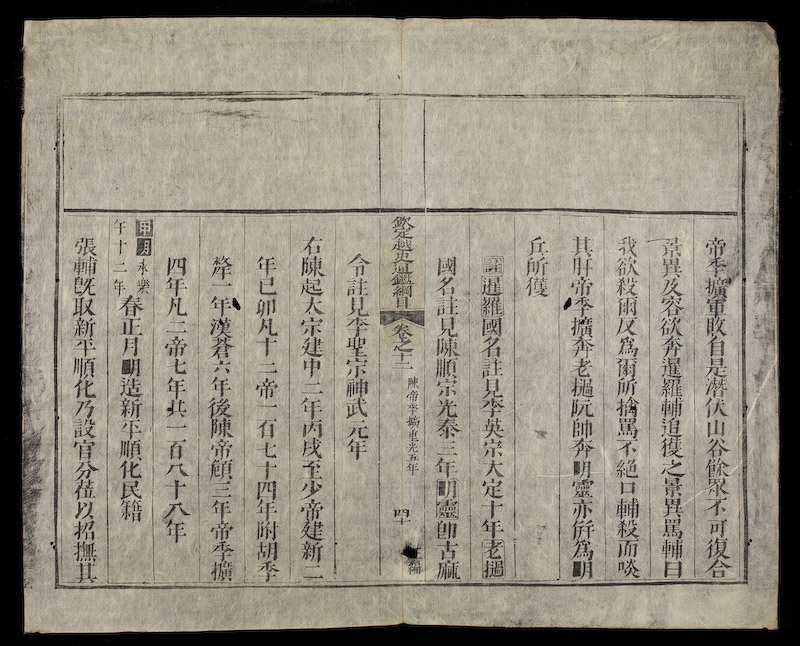 帝季擴軍敗自是潛伏山谷餘眾不可復合
景異及容欲奔暹羅輔追獲之景異罵輔曰
我欲殺爾反爲爾所擒罵不絕口輔殺而啖
其肝帝季擴奔老撾阮帥奔明靈亦俱爲明
兵所獲
註暹羅國名註見李英宗大定十年老撾
國名註見陳順宗光泰三年明靈卽古麻
令註見李聖宗神武元年
欽定越史通鑑綱目 卷之十二 陳帝季擴重光五年 四十 正編
右陳起太宗建中二年丙戌至少帝建新二
年己卯凡十二帝一百七十四年附胡季
犛一年漢蒼六年後陳帝頠三年帝季擴
四年凡二帝七年共一百八十八年
甲午 明永樂十二年 春正月明造新平順化民籍
張輔旣取新平順化乃設官分莅以招撫其